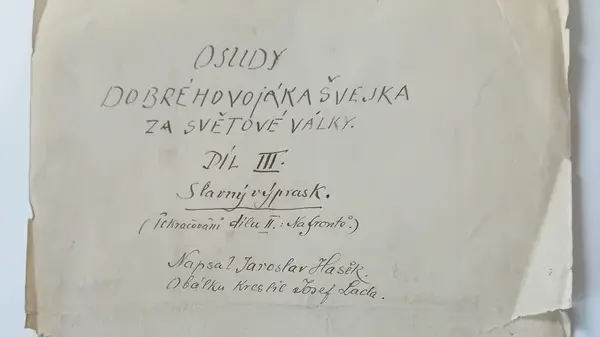 OSUDY
DOBRÉHO VOJÁKA ŠVEJKA
ZA SVĚTOVÉ VÁLKY.
DÍL III.
Slavný výprask.
(Pokračování dílu II.: Na frontě.)
Napsal Jaroslav Hašek.
Obálku kreslil Josef Lada.